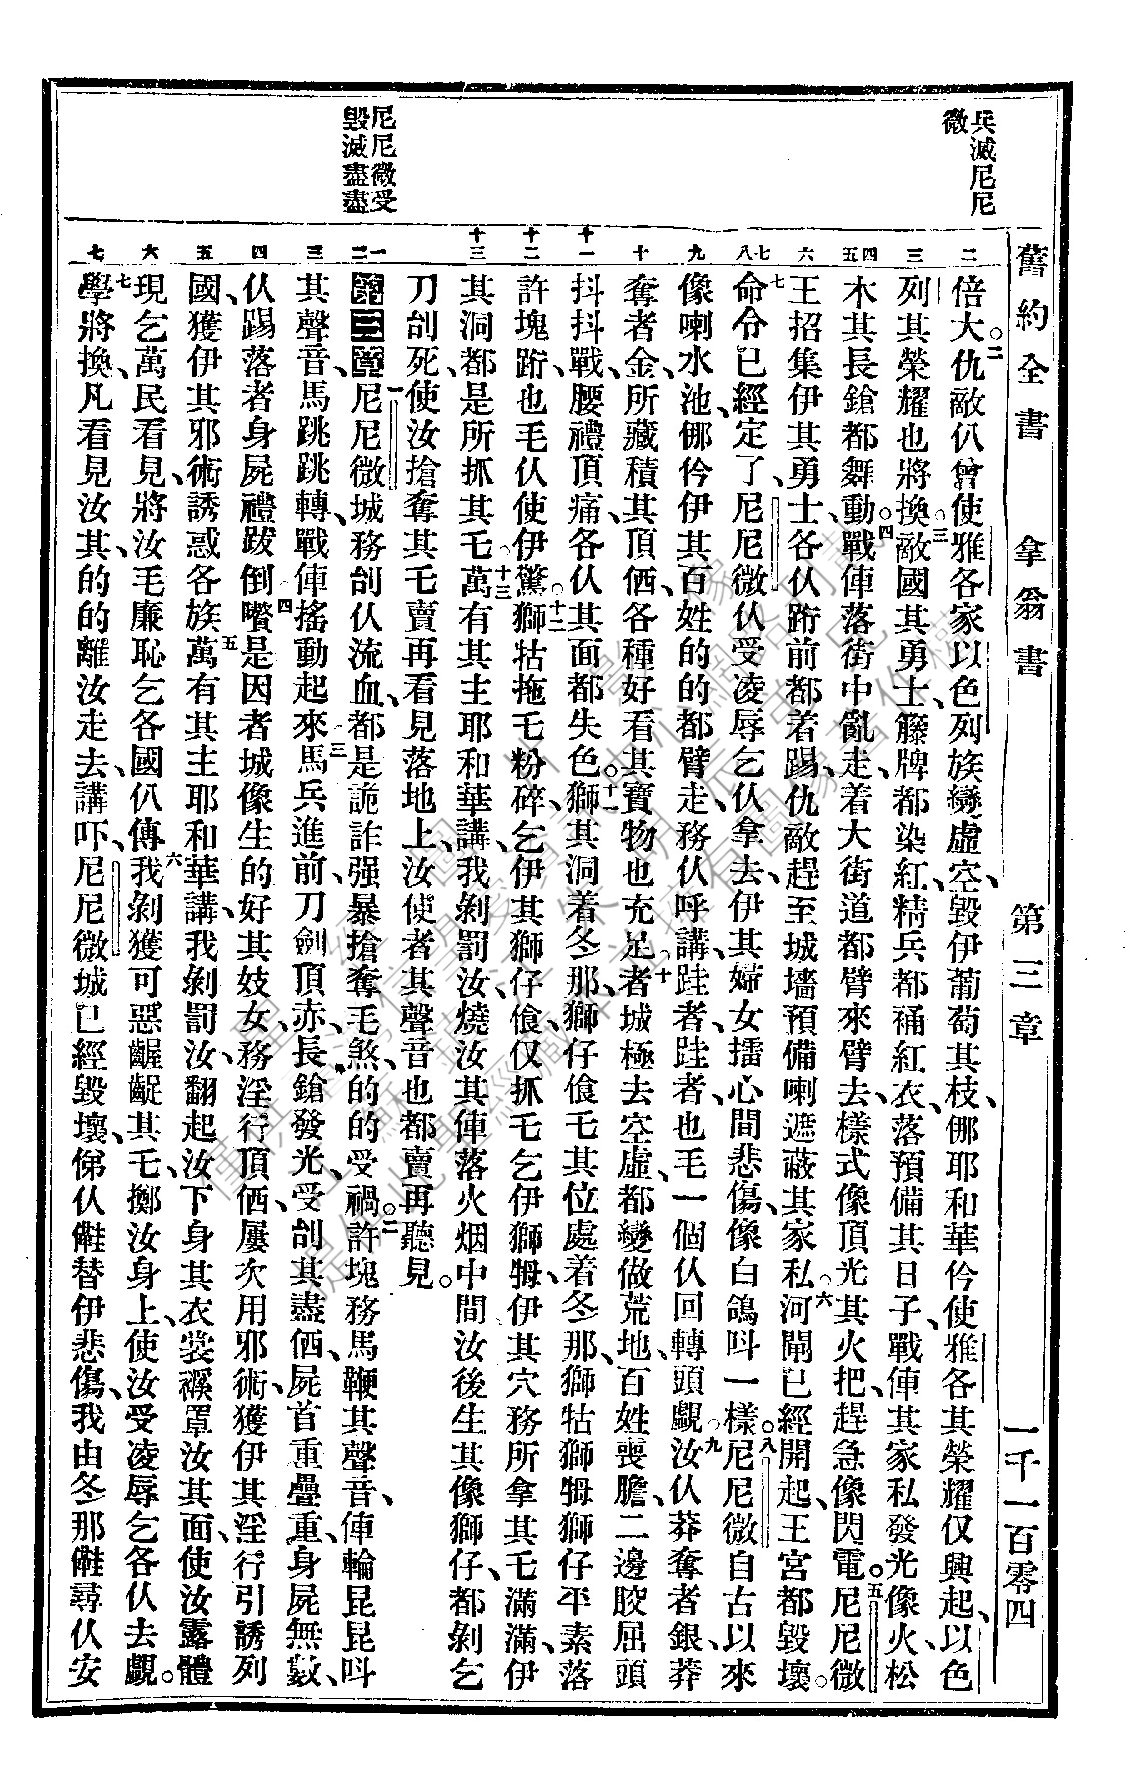 舊約全書 拿翁書 第三章 一千一百零四
兵滅尼尼
微
尼尼微受
毀滅盡盡
二 三 四五 六 七八 九 十 十一 十二 十三 一二 三 四 五 六 七
倍大仇敵仈曾使雅各家以色列族變虛空、毀伊葡萄其枝、㑚耶和華仱使雅各其榮耀仅興起、以色
列其榮耀也將換。三敵國其勇士、籐牌都染紅、精兵都䄻紅衣、落預備其日子、戰俥其家私發光像火、松
木其長鎗都舞動。四戰俥落街中亂走、着大街道都臂來臂去、樣式像頂光其火把、趕急像閃電。五尼尼微
王招集伊其勇士、各仈跨前都着踢、仇敵趕至城墻預備喇遮蔽其家私。六河閘已經開起、王宮都毀壞。
七命令已經定了、尼尼微仈受凌辱乞仈拿去、伊其婦女擂心間悲傷、像白鴿呌一樣。八尼尼微自古以來
像喇水池、㑚仱伊其百姓的的都臂走、務仈呼講、跬者跬者、也毛一個仈回轉頭覷汝。九仈莽奪者銀、莽
奪者金、所藏積其頂価、各種好看其寶物也充足。十者城極去空虛、都變做荒地、百姓喪膽、二邊骹屈頭
抖抖戰、腰禮頂痛、各仈其面都失色。十一獅其洞着冬那、獅仔飡乇其位處着冬那、獅牯獅㹇獅仔平素落
許塊跨、也毛仈使伊驚。十二獅牯拖乇粉碎、乞伊其獅仔飡、仅抓乇乞伊獅㹇、伊其穴務所拿其乇滿滿、伊
其洞都是所抓其乇。十三萬有其主耶和華講、我剝罰汝、燒汝其俥落火烟中間、汝後生其像獅仔、都剝乞
刀刣死、使汝搶奪其乇賣再看見落地上、汝使者其聲音也都賣再聽見。
第三章 一尼尼微城務刣仈流血、都是詭詐强暴、搶奪毛煞、的的受禍。二許塊務馬鞭其聲音、俥輪昆昆呌
其聲音、馬跳跳轉、戰俥搖動起來。三馬兵進前、刀劍頂赤、長鎗發光、受刣其盡価、屍首重疊重、身屍無數、
仈踢落者身屍禮跋倒。四嚽是因者城像生的好其妓女、務淫行頂価、屢次用邪術、獲伊其淫行引誘列
國、獲伊其邪術誘惑各族。五萬有其主耶和華講、我剝罰汝、翻起汝下身其衣裳襈罩汝其面、使汝露體
現乞萬民看見、將汝毛廉恥乞各國仈傳。六我剝獲可惡齷齪其乇、擲汝身上、使汝受凌辱乞各仈去覷。
七學將換、凡看見汝其、的的離汝走去、講吓、尼尼微城已經毀壞、俤仈㒔替伊悲傷、我由冬那㒔尋仈安